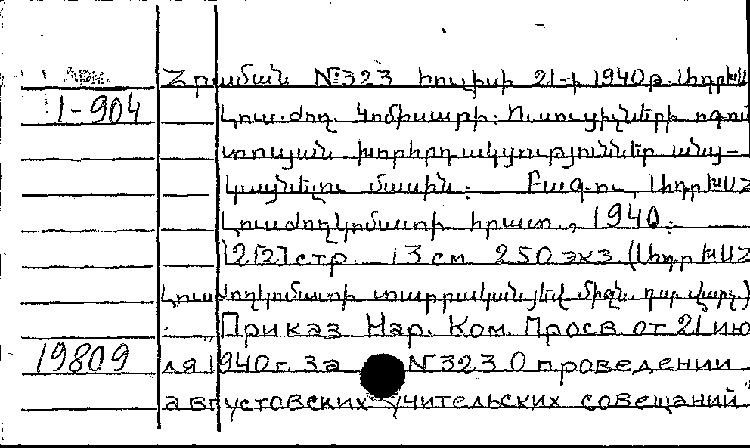 Հրաման №323 հուլիսի 21-ի 1940թ. Ադրխս
1-904
Լուս.ժող. Կոմիսարի: Ուսուցիչների օգոս
տոսյան խորհրդակցություններ անց-
կացնելու մասին: Բաքու, ԱդրԽՍՀ
Լուսժողկոմատի հրատ., 1940:
12[2] стр. 13 см. 250 экз (ԱդրԽՍՀ
Լուսժողկոմատի տարրական և միջն. դպ. վարչ.)
: Приказ Нар. Ком. Просв от 21 ию
19809
ля 1940 г. За №323 О проведении
августовских учительских совещаний